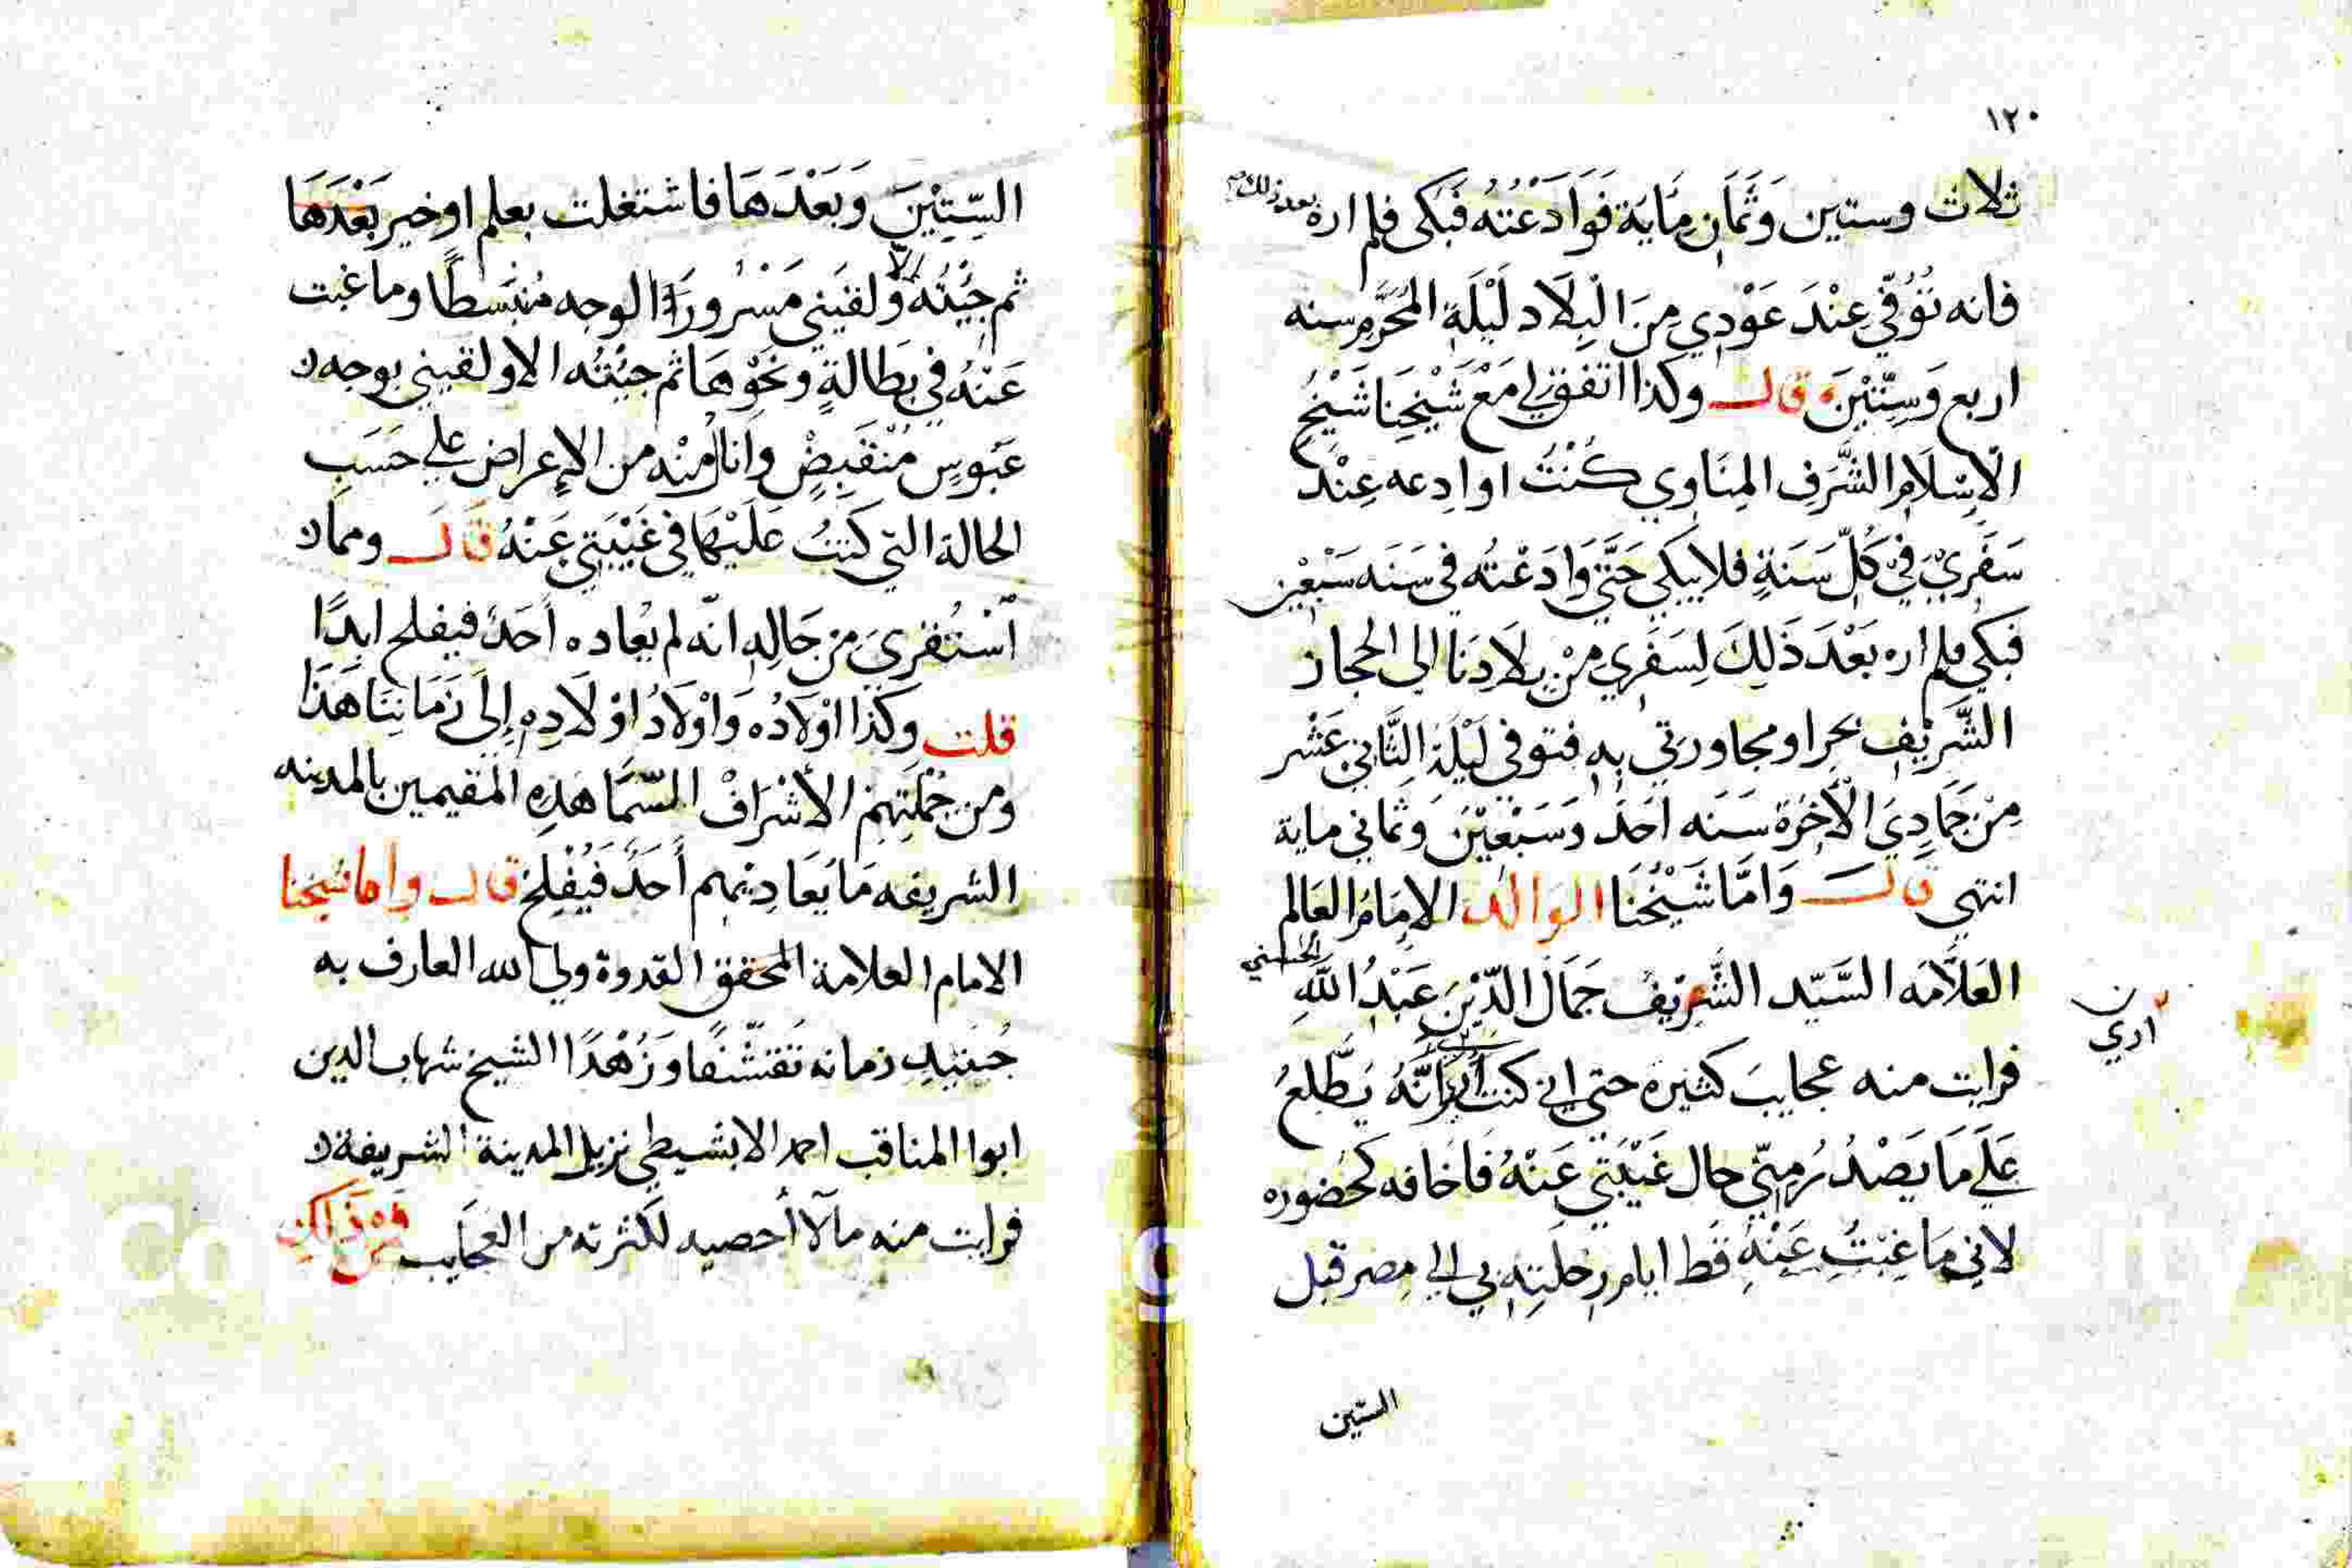 ١٢٠
ثلاث وستين وَثَمَانِ مِايَة فَوَادَعْتُهُ فَبَكَى فلم اره بعد ذلك
فانه تُوُفِّي عِنْدَ عَوْدِي مِنَ الْبِلَاد لَيْلَةِ المُحَرَّمِ سنه
اربع وَسِتِّيْنَ وقال وكذا اتفق لي مَعْ شَيْخِنَا شَيْخِ
الْاِسْلَامِ الشَّرَفِ المِنَاوي كُنْتُ اوادِعه عِنْدَ
سَفَرِيْ فِيْ كُلّ سَنَةٍ فلا يبكي حَتَّى وَادَعْتُه في سَنَه سَبْعِيْن
فبكى فلم اره بَعْدَ ذَلِكَ لِسَفَرِي مِنْ بِلَادِنَا الى الحجاز
الشَّرِيْف بحرا ومجاورتي بِهِ فتوفي لَيْلَة الثَّانِي عَشْر
مِنْ جَمَادِيَ الْآخِرَة سَنَه اَحَدَ وَسَبْعِيْنَ وَثماني ماية
انتهى قال وَامَّا شَيْخُنَا الوالد الاِمَامُ العَالم
العَلاَّمَه السَّيّد الشَّرِيْفُ جَمَال الدّيْنَ عَبْدُ اللَّهِ الحسني
ارى
فرايت منه عجايبَ كثيره حتى اني كنت اَنَّهُ يَطَّلِعُ
عَلَى مَا يَصْدُرُ مِنّي حال غَيْبَتِي عَنْهُ فَاخافه كحُضوره
لاني مَا غِبْتُ عَنْهُ قَط ايام رِحْلَتِهِ بي الي مِصر قبل
الستين
السّتِيْنَ وَبَعْدَهَا فاشتغلت بعلم او خير بَعْدَهَا
ثم جِيْتُهُ الّا ولقيَني مَسْرُورَا الوجه مُنْبَسطًا وما غبت
عَنْهُ في بَطَالةٍ ونَحْوِهَا ثم جيْتُه الا ولقيني بوجه
عَبُوسٍ مُنْقَبِضْ وَانَالُ مِنْه من الاِعراض على حَسَبِ
الحالة التي كنتُ عَلَيْهَا في غَيْبَتِي عَنْهُ قَال ومما
اسْتُقرِيَ مِنْ حَالِهِ انّه لم يُعاده أحَدٌ فيفلح ابدًا
قلت وَكَذَا اوْلَادُه وَاوْلَادُ اوْلَادِهِ اِلَى زَمَانِنَا هَذَا
ومن جُمْلَتِهِمْ الأشْرَافْ السّمَّاهَدِهِ المقيمين بالمدينه
الشريفه مَا يُعَادِيْهِم أحَدٌ فَيُفْلِحْ قال واما شيخنا
الامام العلامة المحقق القدوة ولي الله العارف به
جُنَيْدِ زمانه تَقَشُّفًا وَزُهْدًا الشيخ شهاب الدين
ابوا المناقب احمد الابشيطي نزيل المدينة الشريفة
فرايت منه مآلا أحصيه لكثرته من العَجَايب فمن ذلك